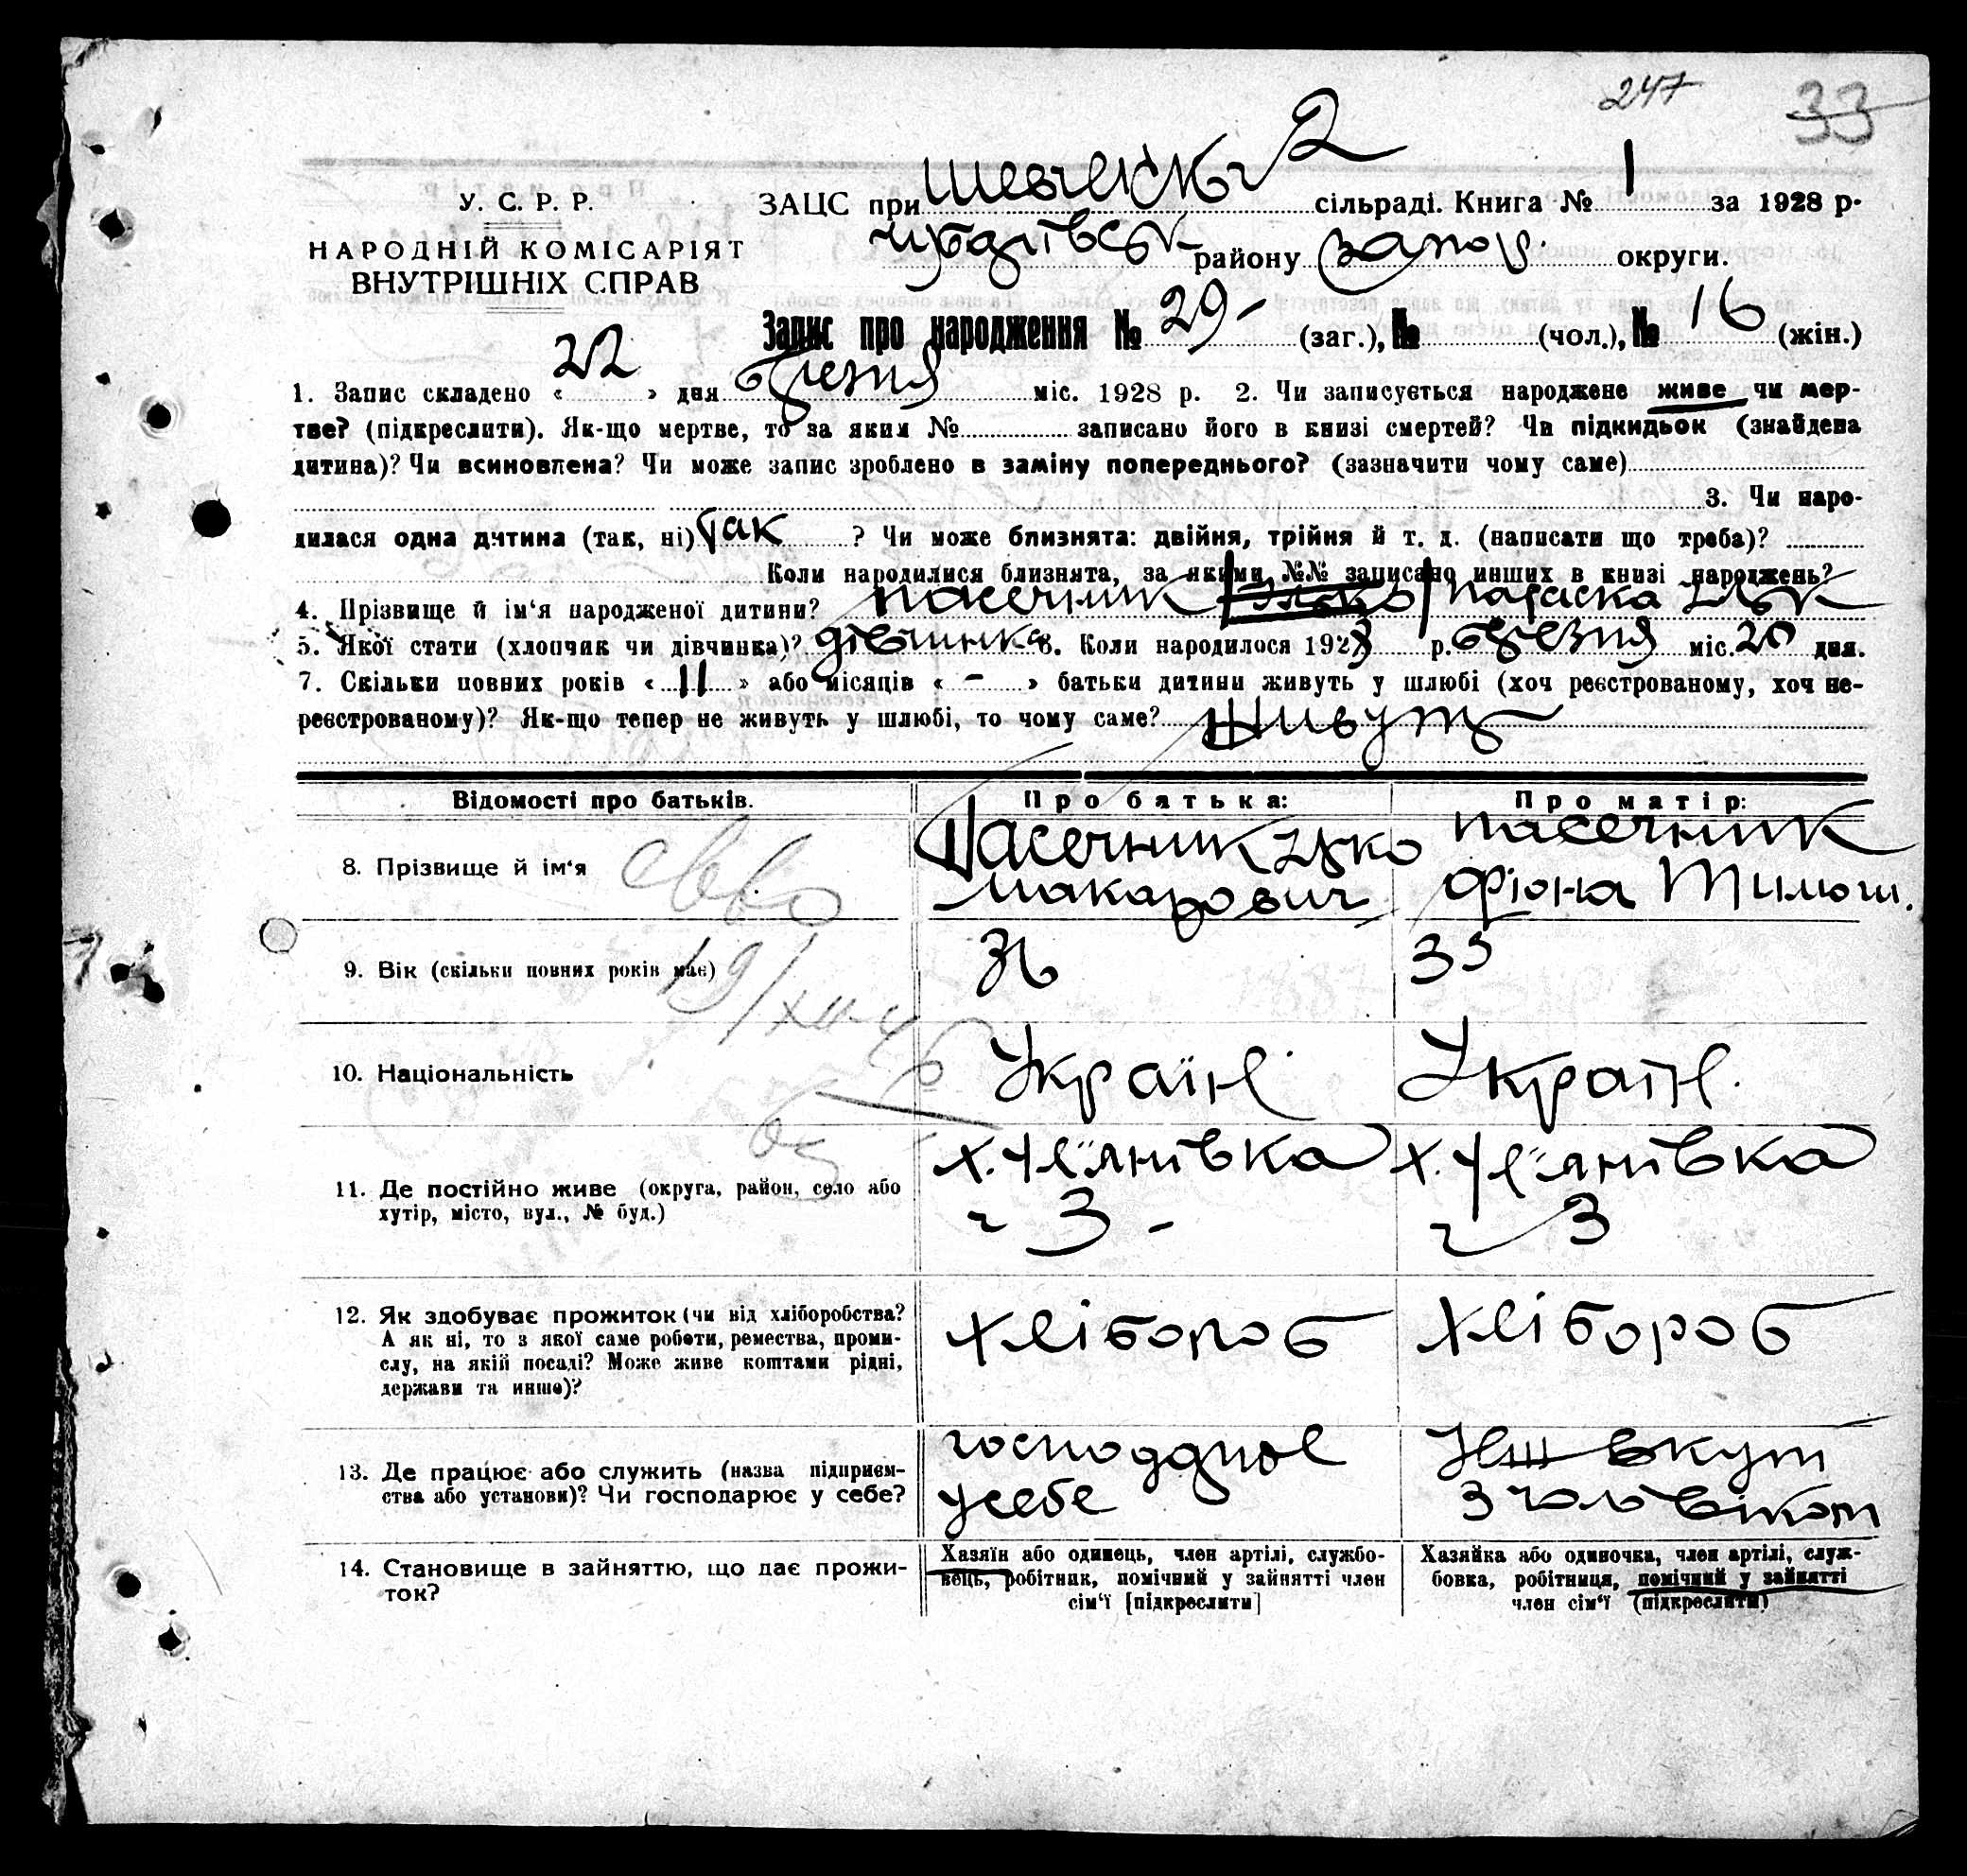 247 33
У. С. Р. Р.
НАРОДНІЙ КОМІСАРІЯТ
ВНУТРІШНІХ СПРАВ
ЗАЦС при 2 сільраді. Книга № 1 за 1928 р.
району Запор. округи.
Запис про народження № 29- (заг.), № (чол.), № 16 (жін.)
1. Запис складено « 22 » дня березня міс. 1928 р. 2. Чи записується народжене живе чи мер-
тве? (підкреслити). Як-що мертве, то за яким № записано його в книзі смертей? Чи підкидьок (знайдена
дитина)? Чи всиновлена? Чи може запис зроблено в заміну попереднього? (зазначити чому саме)
3. Чи наро-
дилася одна дитина (так, ні) так ? Чи може близнята: двійня, трійня й т. д. (написати що треба)?
Коли народилися близнята, за якими №№ записано инших в книзі народжень?
4. Прізвище й ім'я народженої дитини? Пасечник Параска
5. Якої стати (хлопчик чи дівчинка)? дівчинка 6. Коли народилося 1928 р. березня міс. 20 дня.
7. Скільки повних років « 11 » або місяців « - » батьки дитини живуть у шлюбі (хоч реєстрованому, хоч не-
реєстрованому)? Як-що тепер не живуть у шлюбі, то чому саме? Живуть
Відомості про батьків. Про батька: Про матір:
8. Прізвище й ім'я Пасечник Макарович Пасечник Фіона Тимош.
9. Вік (скільки повних років має) 36 35
19/XII-46
10. Національність Україн. Україн.
11. Де постійно живе (округа, район, село або
хутір, місто, вул., № буд.) х. ч 3 - х. ч 3
12. Як здобуває прожиток (чи від хліборобства?
А як ні, то з якої саме роботи, ремества, проми-
слу, на якій посаді? Може живе коштами рідні,
держави та инше)? Хлібороб Хлібороб
13. Де працює або служить (назва підприєм-
ства або установи)? Чи господарює у себе? у себе з чоловіком
14. Становище в зайняттю, що дає прожи-
ток?
Хазяїн або одинець, член артілі, службо-
вець, робітник, помічний у зайнятті член
сім'ї [підкреслити]
Хазяйка або одиночка, член артілі, служ-
бовка, робітниця, помічний у зайнятті
член сім'ї (підкреслити)